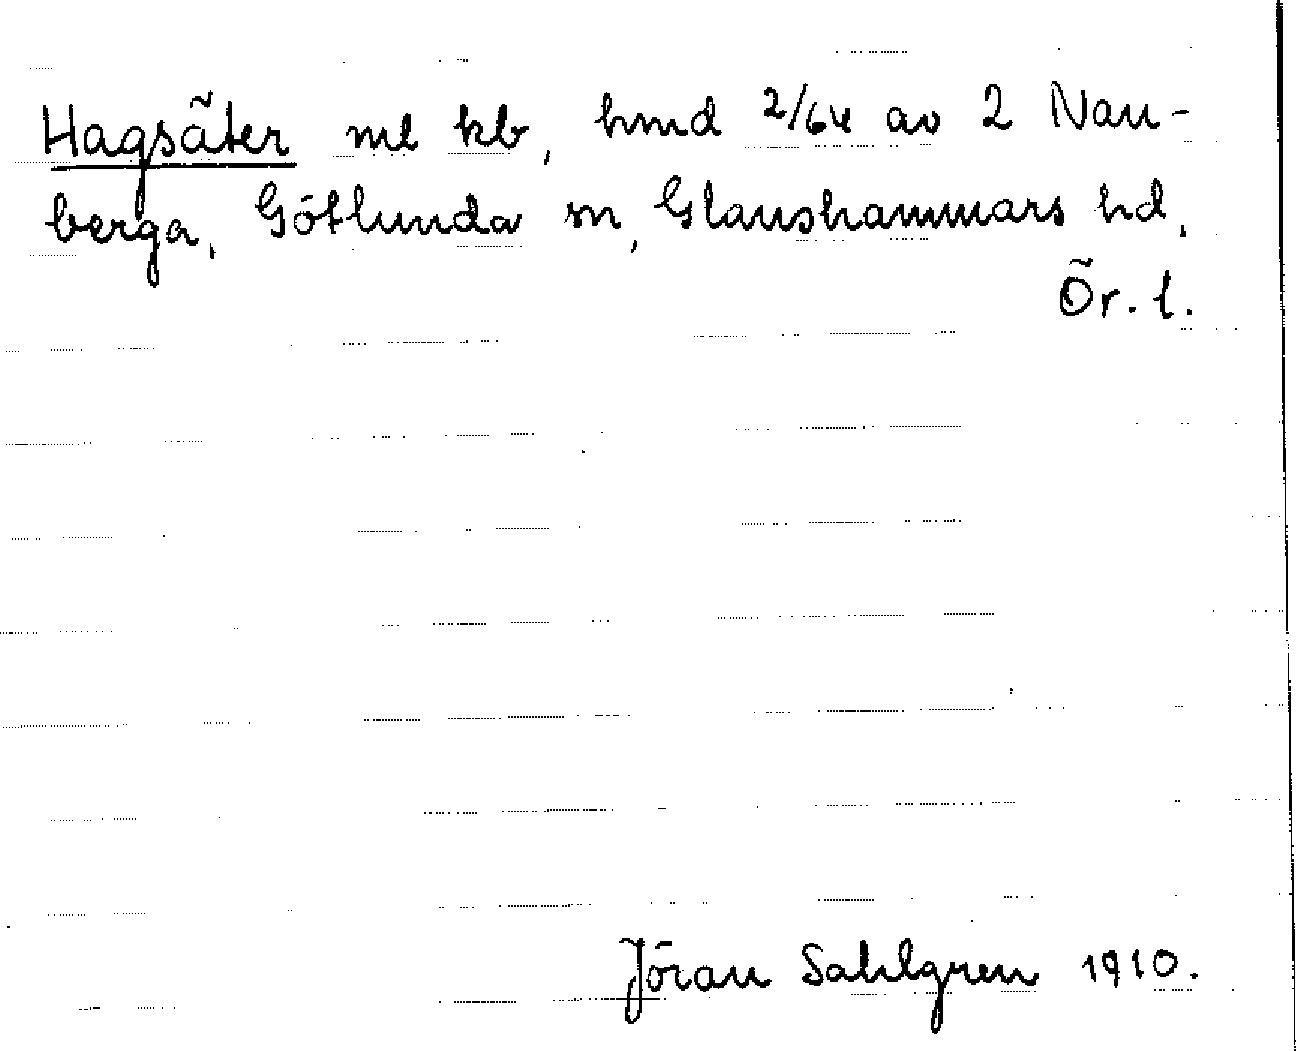 Hagsäter ml kb, hmd 2/64 av 2 Nan-
berga, Götlunda sn, Glanshammars hd,
Ör. l.
Jöran Sahlgren 1910.